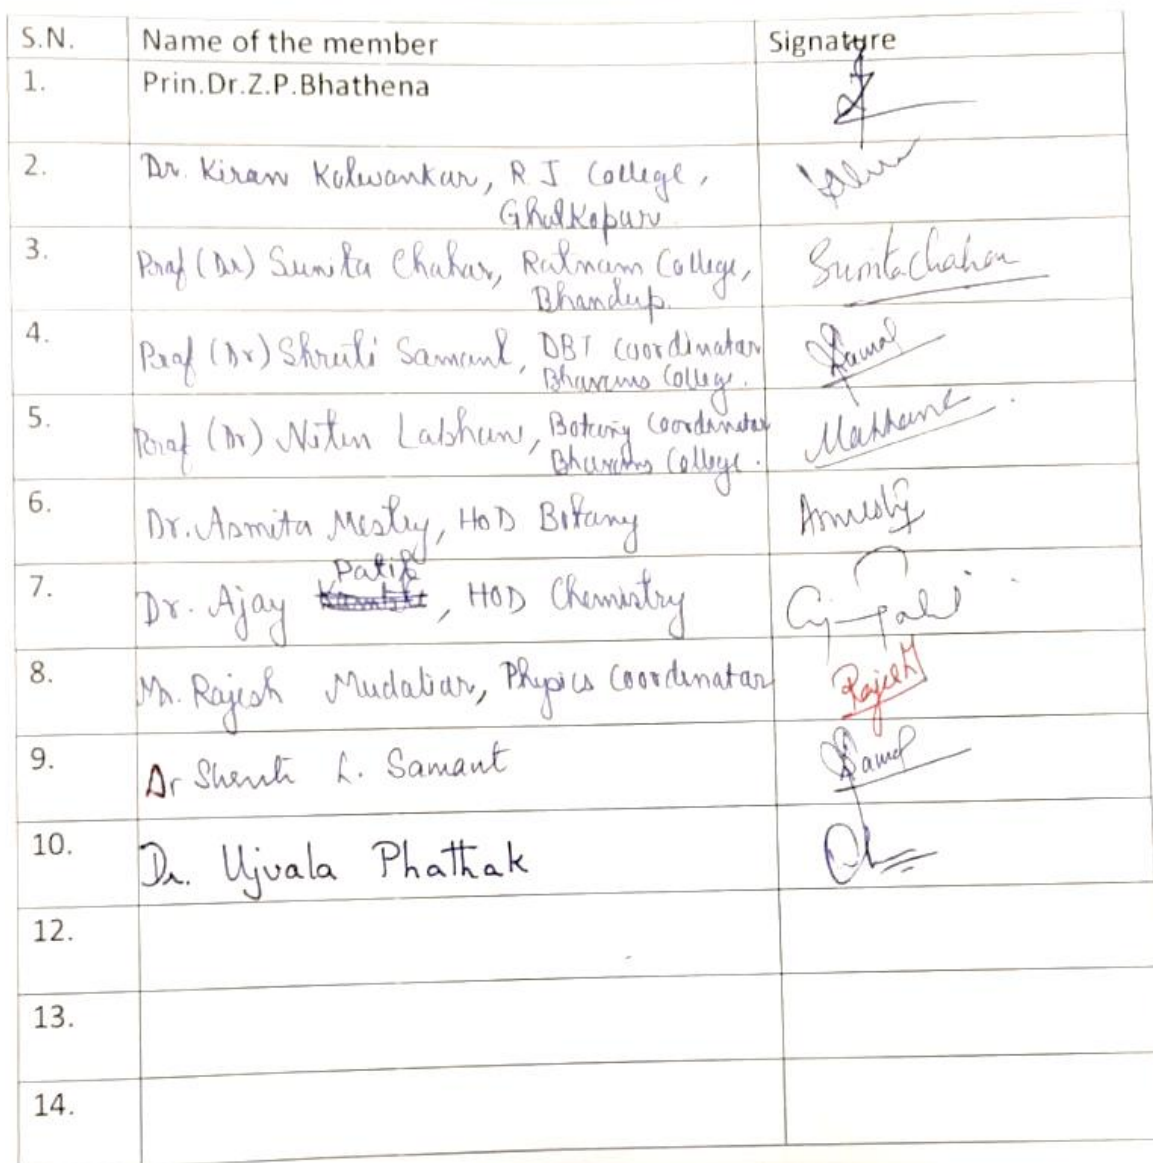 S.N. Name of the member Signature
1. Prin.Dr.Z.P.Bhathena
2. Dr. Kiran Kolwankar, R J College,
Ghatkopar
3. Prof (Dr) Sunita Chahar, Ratnam College, Sunita Chahar
Bhandup.
4. Prof (Dr) Shruti Samant, DBT Coordinator
Bhavans College.
5. Prof (Dr) Nitin Labhane, Botany Coordinator
Bhavans College.
6. Dr. Asmita Mestry, HoD Botany
Patil
7. Dr. Ajay , HOD Chemistry
8. Mr. Rajesh Mudaliar, Physics Coordinator Rajesh M
9. Dr Shruti L. Samant
10. Dr. Ujvala Phathak
12.
13.
14.